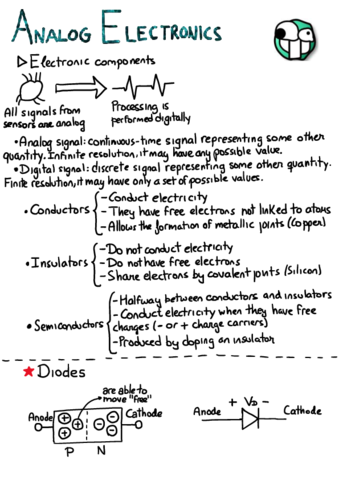 ANALOG ELECTRONICS
▷Electronic components
All signals from
sensors are analog
Processing is
performed digitally
•Analog signal: continuous-time signal representing some other
quantity. Infinite resolution, it may have any possible value.
•Digital signal: discrete signal representing some other quantity.
Finite resolution, it may have only a set of possible values.
•Conductors
-Conduct electricity
-They have free electrons not linked to atoms
-Allows the formation of metallic joints (Copper)
•Insulators
-Do not conduct electricity
-Do not have free electrons
-Share electrons by covalent joints (Silicon)
•Semiconductors
-Halfway between conductors and insulators
-Conduct electricity when they have free
changes (- or + change carriers)
-Produced by doping an insulator
★Diodes
are able to
move "free"
Anode + + + - - - Cathode
P N
+ VD -
Anode Cathode